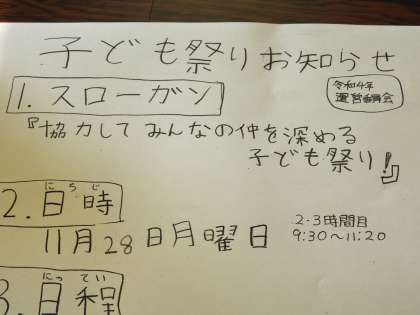 子ども祭りお知らせ
令和4年
運営委員会
1.スローガン
『協力してみんなの仲を深める
子ども祭り!』
にちじ
2.日時
11月28日月曜日
2・3時間目
9:30〜11:20
にってい
3.日程